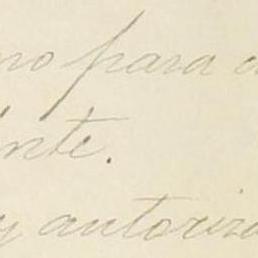 no para
nte.
y autoriz